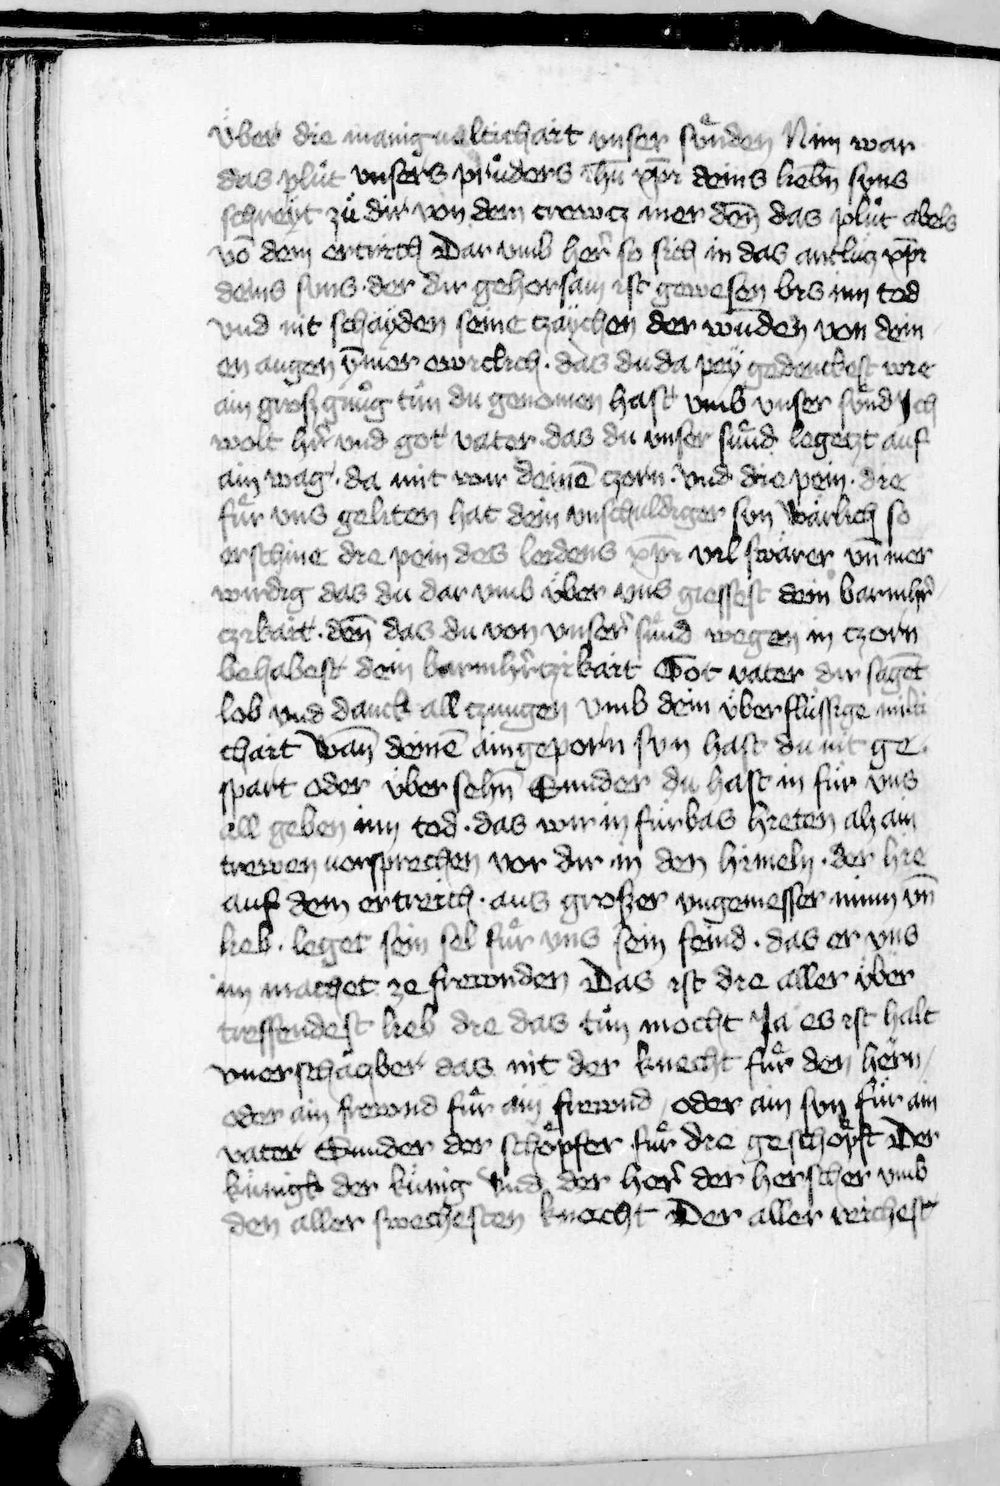 über die manigualtichait vnser sünden Nim war
das plůt vnsers průders ihū xp̄i deins liebn̄ suns
schreÿt zů dir von dem crewcz mer den̄ das plůt abels
vō dem ertrich Dar vmb her̄ so sich in das antlucz xp̄i
deins suns · der dir gehorsam ist gewesen bis inn tod
vnd nit schayden seine czaychen der wunden von dein
en augen ym̄er ewiclich · das du da peÿ gedenckest wie
ain gross gnůg tůn du genomen hast vmb vnser sünd Ich
wolt hr̄ vnd got vater · das du vnser sünd legetzt auf
ain wag · da mit wir deinē czorn · vnd die pein · die
für vns geliten hat dein vnschuldiger sun Wärlich so
erschine die pein des leidens xp̄i vil swärer vn̄ mer
wirdig das du dar vmb über vns giessest dein barmhr̄
czikait · den̄ das du von vnser̄ sünd wegen in czorn
behabest dein barmhr̄czikait Got vater dir sagēt
lob vnd danck all czungen vmb dein überflüssige milti
chait Wan̄ deinē aingeporn sun hast du nit ge
spart oder übersehn̄ Sunder du hast in für vns
all geben inn tod · das wir in fürbas hieten alz ain
trewen vorsprechen vor dir in den himeln · der hie
auf dem ertreich · aus grosser vngemesser minn vn̄
lieb · leget sein sel für vns sein feind · das er vns
im machet ze frewnden Das ist die aller über
treffendest lieb die das tůn mocht Ja es ist halt
vnerschäczber das nit der knecht für den herrn
oder ain frewnd für ain frewnd / oder ain sun für ain
vater Sunder der schöpfer für die geschöpft Der
künigk der künig Vnd der her̄ der herscher vmb
den aller swechesten knecht Der aller reichest